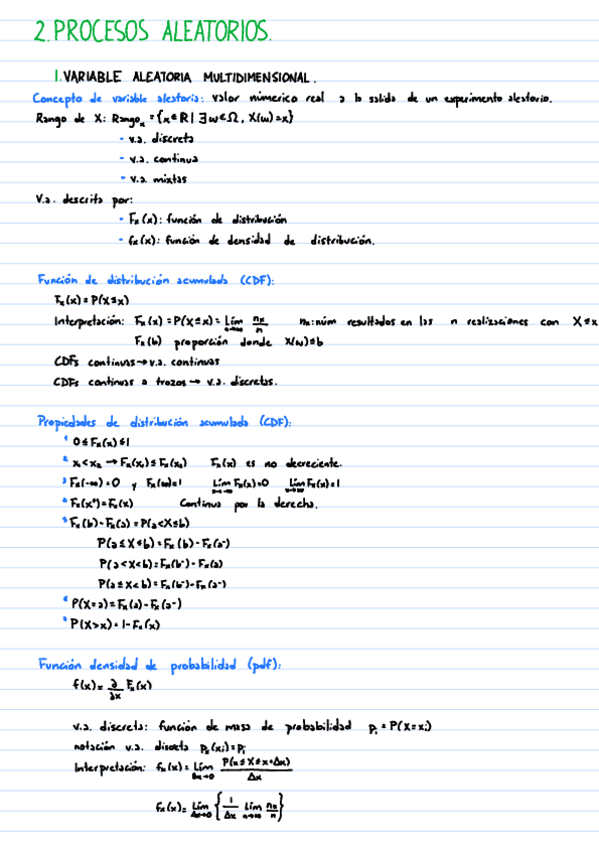 2. PROCESOS ALEATORIOS.
1. VARIABLE ALEATORIA MULTIDIMENSIONAL.
Concepto de variable aleatoria: valor númerico real a la salida de un experimento aleatorio.
Rango de X: Rangoₓ = {x∈ℝ | ∃ω∈Ω, X(ω)=x}
- v.a. discreta
- v.a. continua
- v.a. mixtas
V.a. descrita por:
- Fₓ(x): función de distribución
- fₓ(x): función de densidad de distribución.
Función de distribución acumulada (CDF):
Fₓ(x) = P(X≤x)
Interpretación: Fₓ(x) = P(X≤x) = Lím n→∞ nₓ/n nₓ: núm resultados en las n realizaciones con X≤x
Fₓ(b) proporción donde X(ω)≤b
CDFs continuas → v.a. continuas
CDFs continuas a trozos → v.a. discretas.
Propiedades de distribución acumulada (CDF):
1 0≤Fₓ(x)≤1
2 x₁<x₂ → Fₓ(x₁)≤Fₓ(x₂) Fₓ(x) es no decreciente.
3 Fₓ(-∞)=0 y Fₓ(∞)=1 Lím x→-∞ Fₓ(x)=0 Lím x→∞ Fₓ(x)=1
4 Fₓ(x⁺)=Fₓ(x) Continua por la derecha.
5 Fₓ(b)-Fₓ(a) = P(a<X≤b)
P(a≤X≤b) = Fₓ(b)-Fₓ(a⁻)
P(a<X<b) = Fₓ(b⁻)-Fₓ(a)
P(a≤X<b) = Fₓ(b⁻)-Fₓ(a⁻)
P(X=a) = Fₓ(a)-Fₓ(a⁻)
P(X>x) = 1-Fₓ(x)
Función densidad de probabilidad (pdf):
f(x) = ∂/∂x Fₓ(x)
v.a. discreta: función de masa de probabilidad pᵢ = P(X=xᵢ)
notación v.a. discreta pₓ(xᵢ)=pᵢ
Interpretación: fₓ(x) = Lím Δx→0 P(x≤X≤x+Δx)/Δx
fₓ(x) = Lím Δx→0 {1/Δx Lím n→∞ nₓ/n}